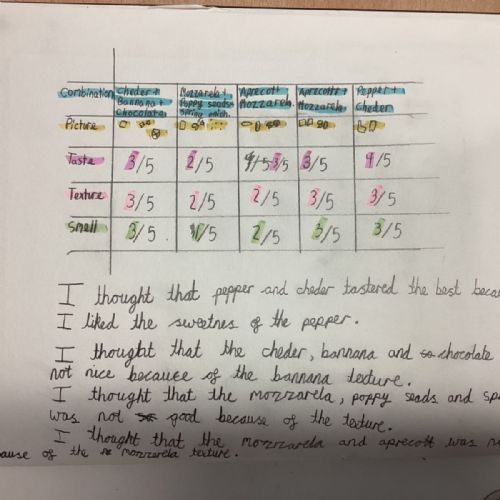 Combination Cheder + Bannana + Chocolate Mozzarela + Poppy seads + Spring onion. Aprecott Mozzarela. Aprecott + Mozzarela Pepper + Cheder
Picture
Taste 3/5 2/5 3/5 3/5 4/5
Texture 3/5 2/5 2/5 3/5 3/5
Smell 3/5 1/5 2/5 3/5 3/5
I thought that pepper and cheder tastered the best becau
I liked the sweetnes of the pepper.
I thought that the cheder, bannana and chocolate
not nice because of the bannana texture.
I thought that the mozzarela, poppy seads and sp
was not good because of the texture.
I thought that the mozzarela and aprecott was no
ause of the mozzarela texture.